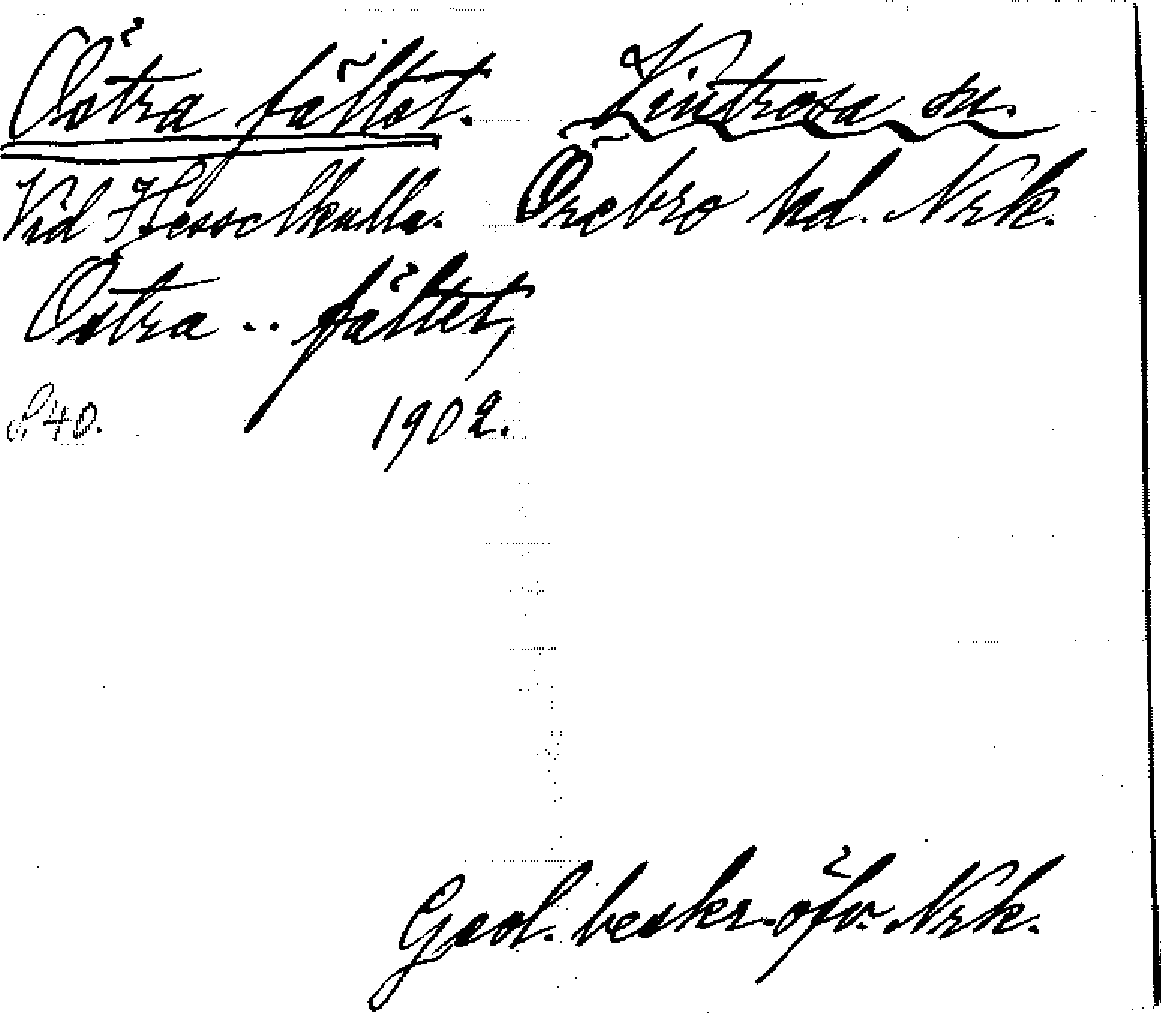 Östra fältet. Vintrosa sn.
Vid Hesselkulla. Örebro hd. Nrk.
Östra .. fältet,
S. 40. 1902.
Geol. beskr. öfv. Nrk.